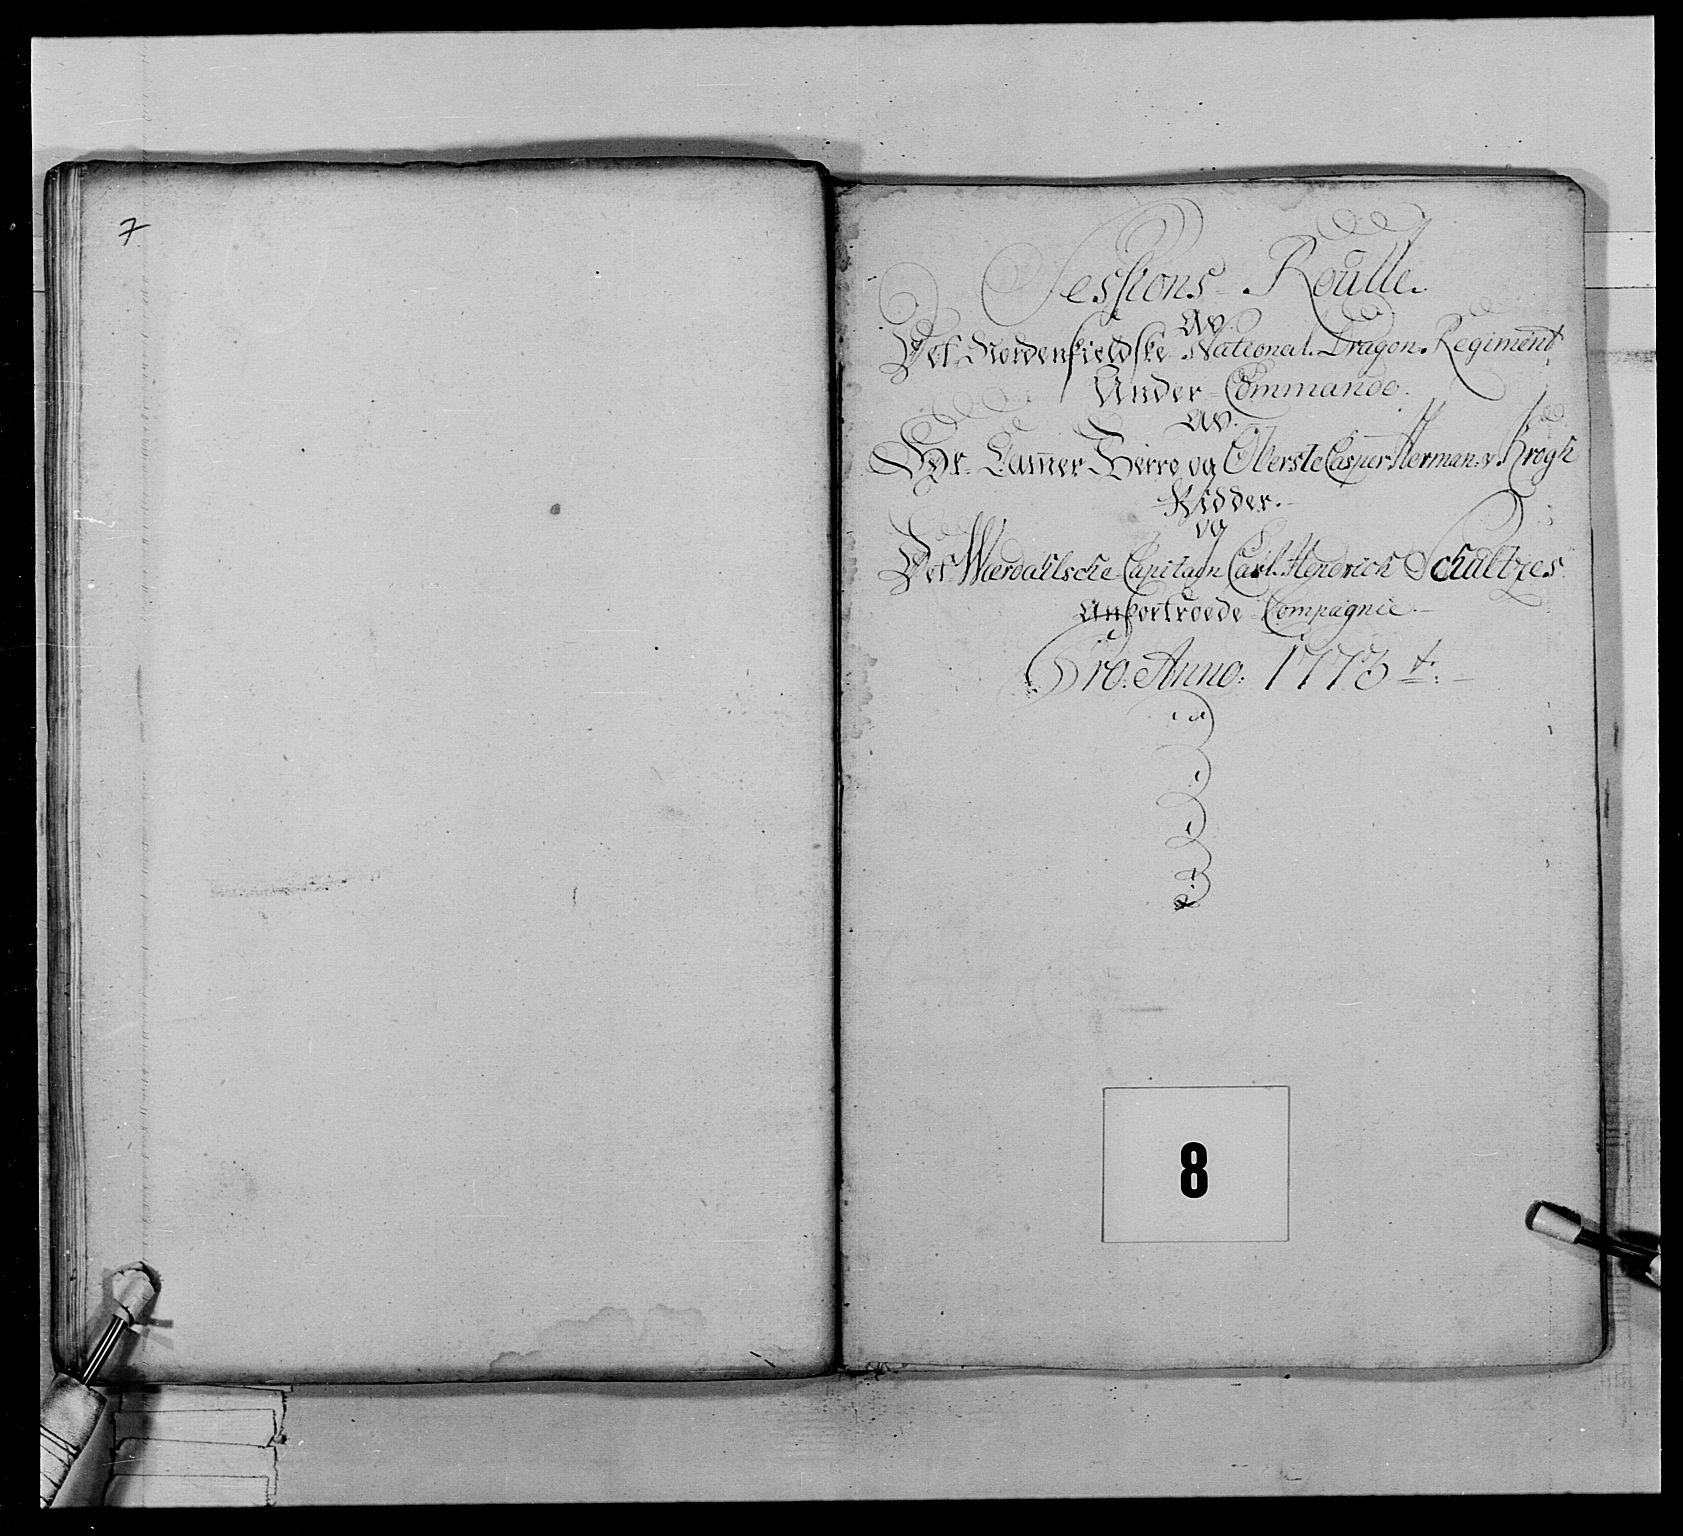 7
Sessions-Roulle.
Av.
Det Nordenfieldske National. Dragon. Regiment
Under Commando.
Av.
Hr. Camer Herre og Oberste Casper Herman. v. Krogh
Ridder.
og
Det Wærdahlsche Capitain Carl. Hendrich Schultzes
Anfortroede Compagnie.
Pro. Anno: 1773
8